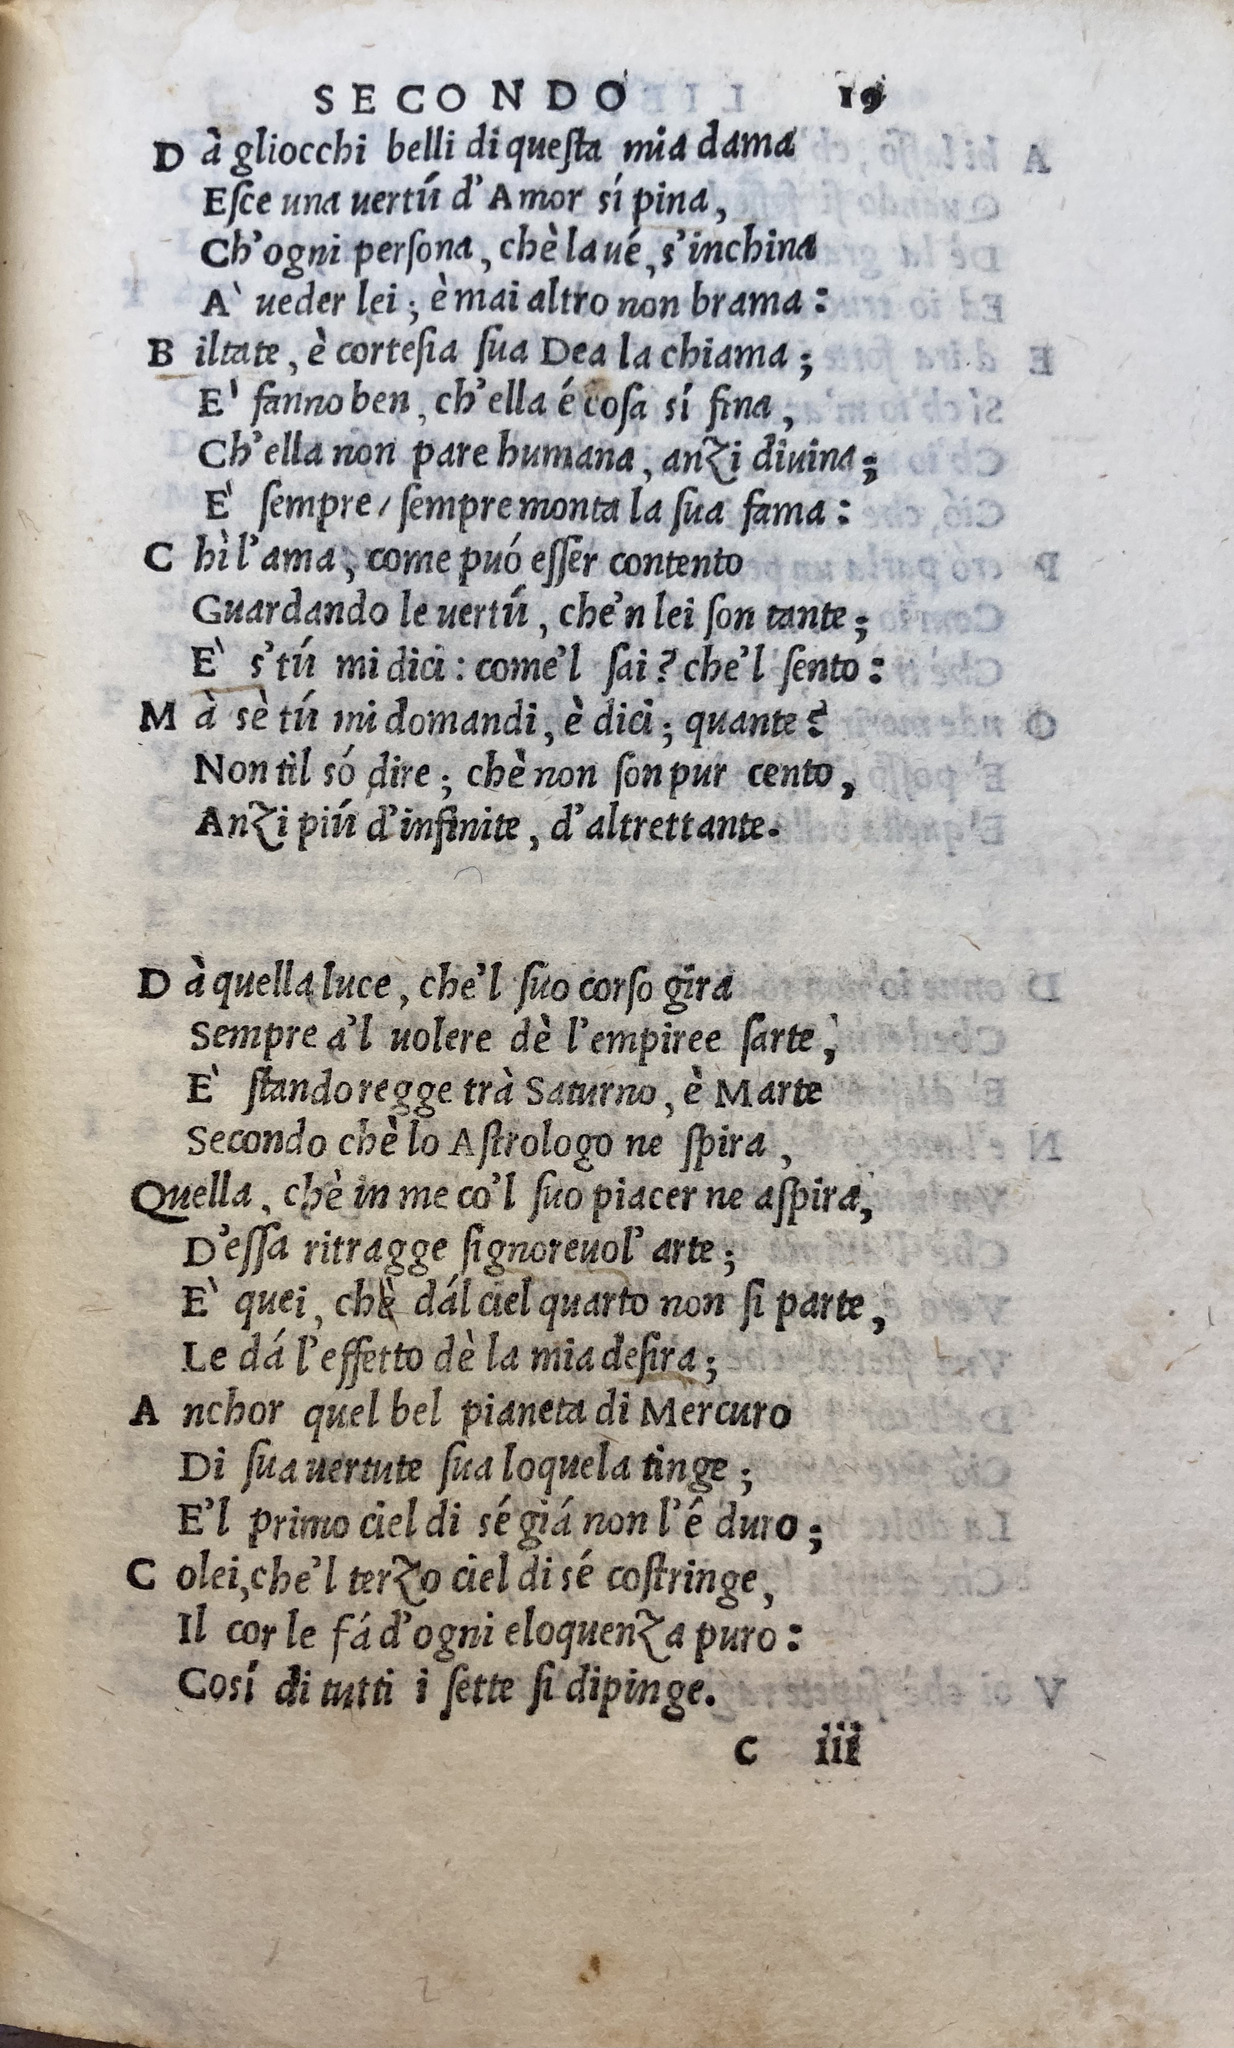 SECONDO 19
Dà gliocchi belli di queſta mia dama
Eſce una uertú d'Amor sí pina,
Ch'ogni perſona, chè la ué, s'inchina
A' ueder lei; è mai altro non brama:
Biltate, è corteſia ſua Dea la chiama;
E' fanno ben, ch'ella é coſa sí fina,
Ch'ella non pare humana, anzi diuina;
E' ſempre/ ſempre monta la ſua fama:
Chì l'ama, come puó eſſer contento
Guardando le uertú, che'n lei ſon tante;
E' s'tú mi dici: come'l ſai? che'l ſento:
Mà sè tú mi domandi, è dici; quante?
Non til só dire; chè non ſon pur cento,
Anzi piú d'infinite, d'altrettante.
Dà quella luce, che'l ſuo corſo gira
Sempre a'l uolere dè l'empiree ſarte,
E' ſtando regge trà Saturno, è Marte
Secondo chè lo Aſtrologo ne ſpira,
Quella, chè in me co'l ſuo piacer ne aſpira,
D'eſſa ritragge ſignoreuol' arte;
E' quei, chè dál ciel quarto non ſi parte,
Le dá l'effetto dè la mia deſira;
Anchor quel bel pianeta di Mercuro
Di ſua uertute ſua loquela tinge;
E'l primo ciel di sé giá non l'é duro;
Colei, che'l terzo ciel di sé coſtringe,
Il cor le fá d'ogni eloquenza puro:
Cosí di tutti i ſette ſi dipinge.
C iii